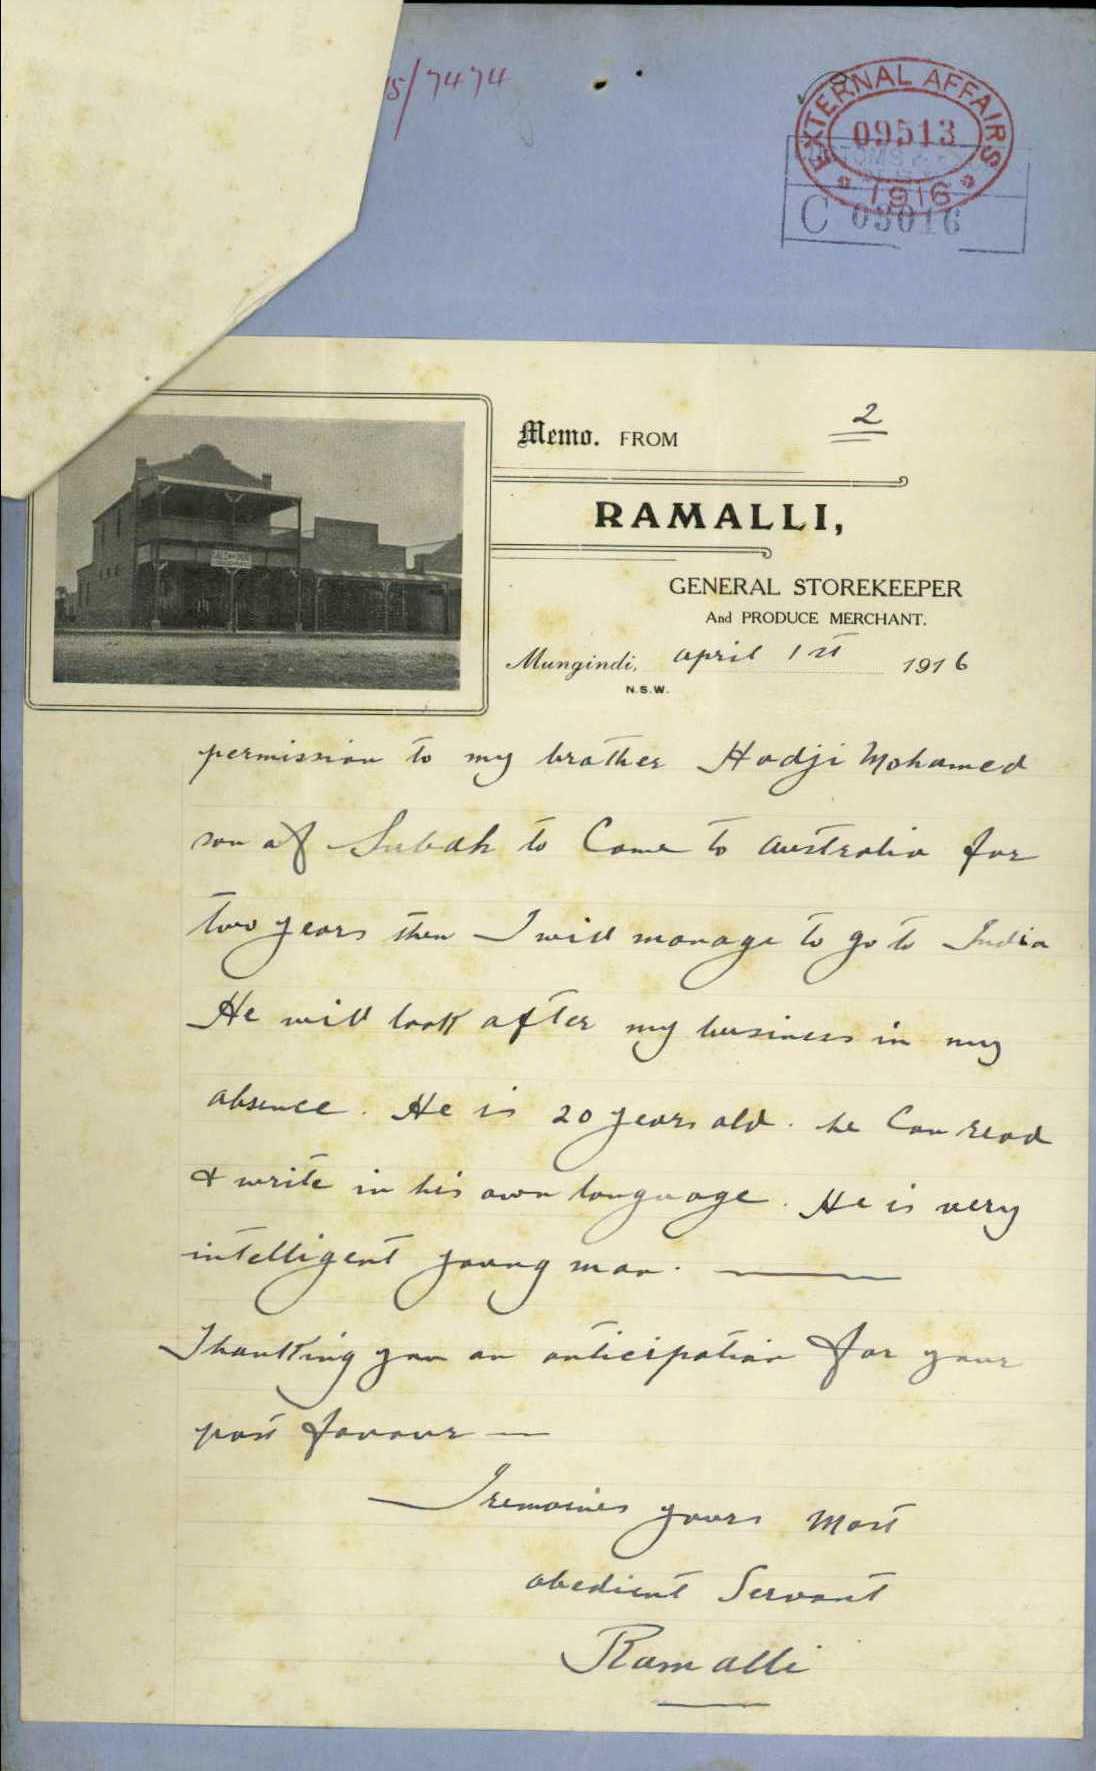 15/7474
EXTERNAL AFFAIRS
09513
1916
C 03016
2
Memo. FROM
RAMALLI,
GENERAL STOREKEEPER
And PRODUCE MERCHANT.
Mungindi, april 1st 1916
N.S.W.
permission to my brother Hadji Mohamed
son of Subah to Come to Australia for
two years then I will manage to go to India
He will look after my business in my
absence. He is 20 years old. he Can read
& write in his own language. He is very
intelligent young man.
Thanking you an anticipation for your
past favour —
I remaines yours Most
obedient Servant
Ramalli